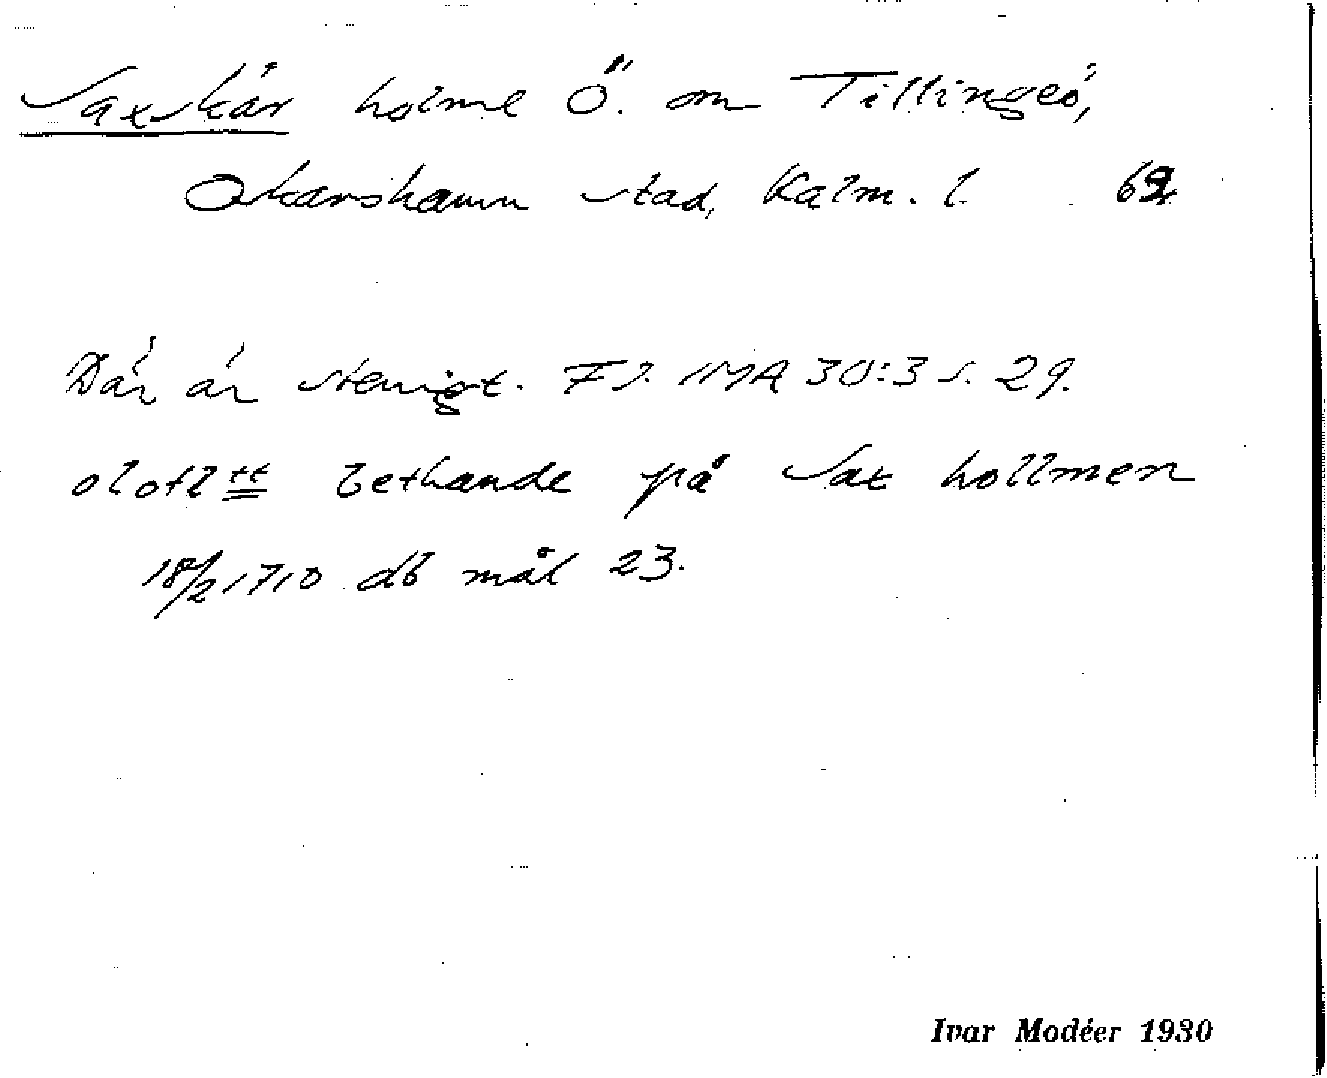 Saxskär holme Ö. om Tillingeö,
Oskarshamn stad, Kalm. l. 69
Där är stenigt. FJ. IMA 30:3 s. 29.
olofl tt bethande på Sax hollmen
18/2 1710 db mål 23.
Ivar Modéer 1930